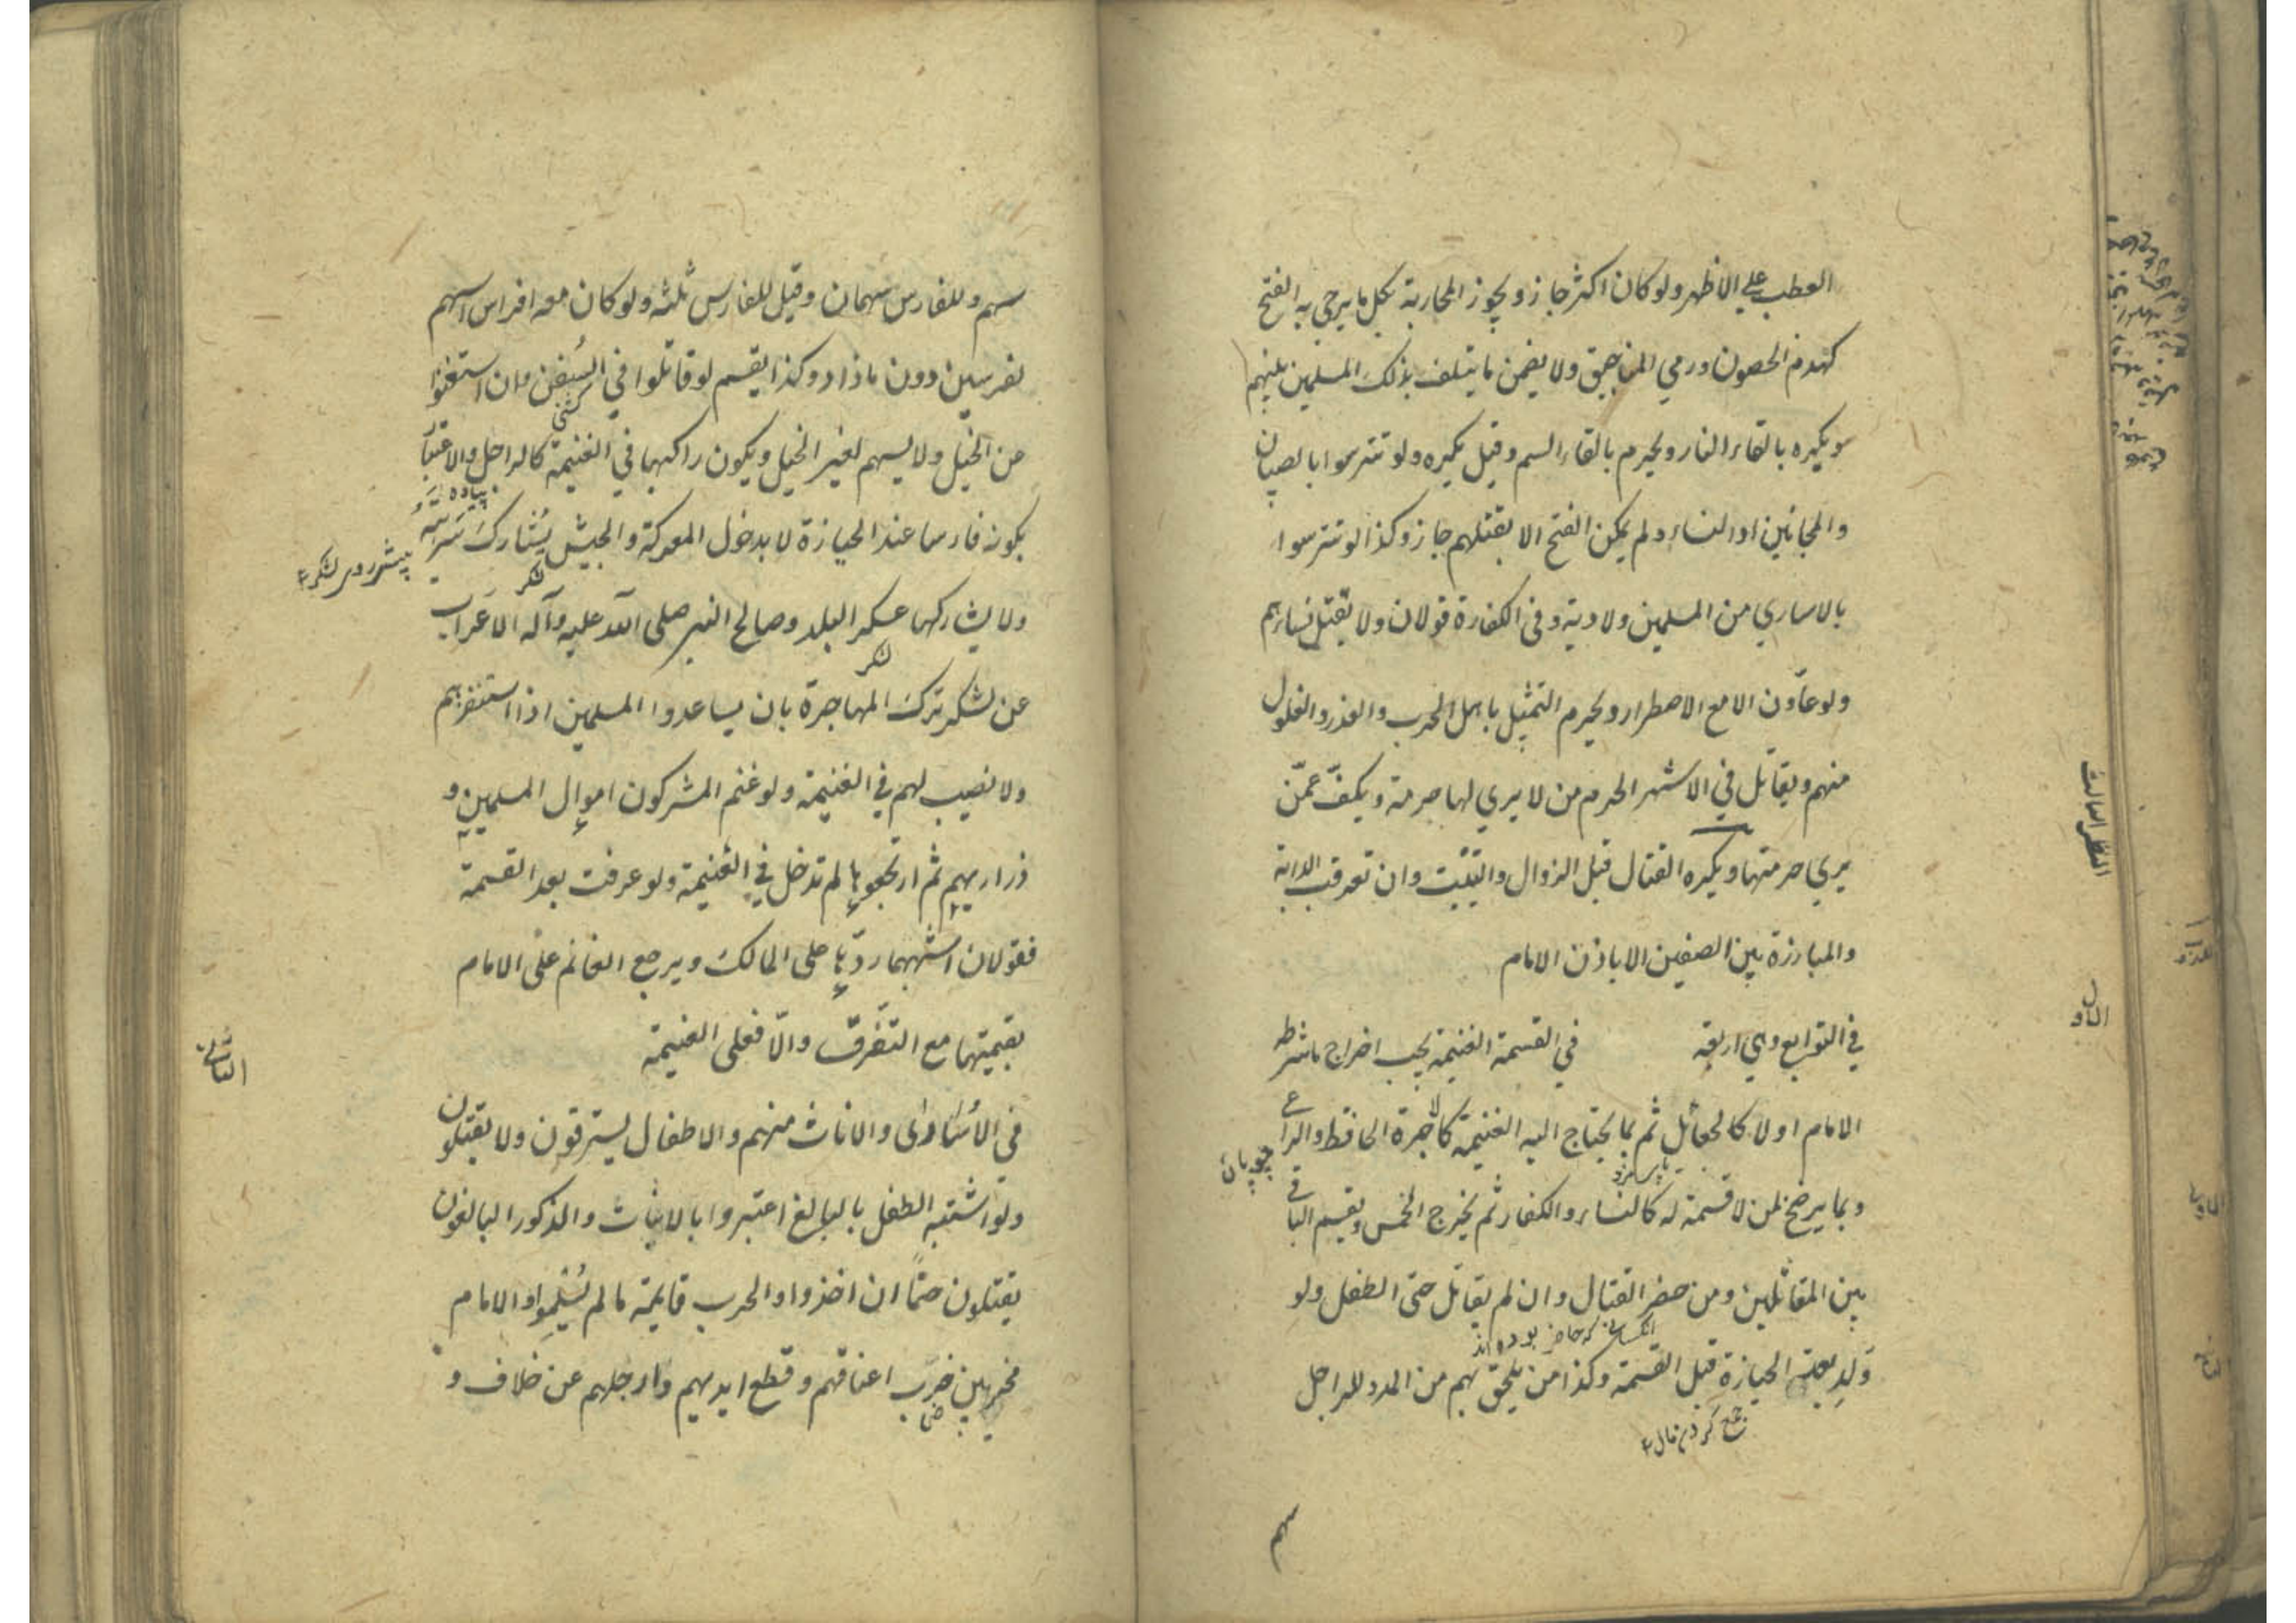 العطب علي الاظهر ولو كان اكثر جاز و يجوز المحاربة بكل ما يرجي به الفتح
كهدم الحصون و رمي المناجيق ولا يضمن ما يتلف بذلك المسلمين بينهم
و يكره بالقاء النار و يحرم بالقاء السم و قيل يكره ولو تترسوا بالصبيان
والمجانين او النساء و لم يمكن الفتح الا بقتلهم جاز و كذا لو تترسوا
بالاساري من المسلمين ولا دية و في الكفارة قولان ولا يقتل نساءهم
ولو عاون الا مع الاضطرار و يحرم التمثيل باهل الحرب والغدر والغلول
منهم و يقاتل في الاشهر الحرم من لا يري لها حرمة و يكف عمن
يري حرمتها و يكره القتال قبل الزوال والتبييت وان تعرقب الدابة
والمبارزة بين الصفين الا باذن الامام
النظر الثالث
في التوابع وهي اربعة
الاول
في القسمة الغنيمة يجب اخراج ما شرطه
الامام اولا كالجعائل ثم بما يحتاج اليه الغنيمة كاجرة الحافظ والراعي
چوپان
و بما يرضخ لمن لا قسمة له كالنساء والكفار ثم يخرج الخمس و يقسم الباقي
بين المقاتلين و من حضر القتال وان لم يقاتل حتى الطفل ولو
ولد بعد الحيازة قبل القسمة و كذا من يلحق بهم من المدد للراجل
جمع كردن مال
سهم
سهم و للفارس سهمان و قيل للفارس ثلثه ولو كان معه افراس اسهم
لفرسين دون ما زاد و كذا يقسم لو قاتلوا في السفن وان استغنوا
كشتی
من الخيل ولا يسهم لغير الخيل و يكون راكبها في الغنيمة كالراجل والاعتبار
پیاده
بكونه فارسا عند الحيازة لا بدخول المعركة والجيش يشارك سريته
لشكر
ولا يشاركها عسكر البلد و صالح النبي صلى الله عليه وآله الاعراب
لشكر
عن لشكر ترك المهاجرة بان يساعدوا المسلمين اذا استنفرهم
ولا نصيب لهم في الغنيمة ولو غنم المشركون اموال المسلمين و
ذراريهم ثم ارتجعوها لم تدخل في الغنيمة ولو عرفت بعد القسمة
فقولان اشبههما ردها على المالك و يرجع الغانم على الامام
بقيمتها مع التفرق والا فعلى الغنيمة
الثاني
في الأسارى والاناث منهم والاطفال يسترقون ولا يقتلون
ولو اشتبه الطفل بالبالغ اعتبروا بالانبات والذكور البالغون
يقتلون حتما ان اخذوا والحرب قايمة ما لم يسلموا والامام
مخير بين ضرب اعناقهم و قطع ايديهم وارجلهم عن خلاف و